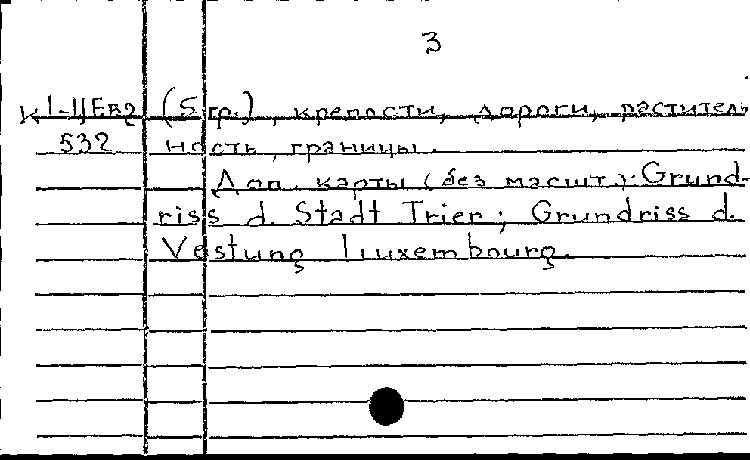 3
К1-ЦЕв2 (5 гр.), крепости, дороги, раститель
532 ность, границы.
Доп. карты (без масшт.): Grund-
riss d. Stadt Trier; Grundriss d.
Vestung Luxembourg.